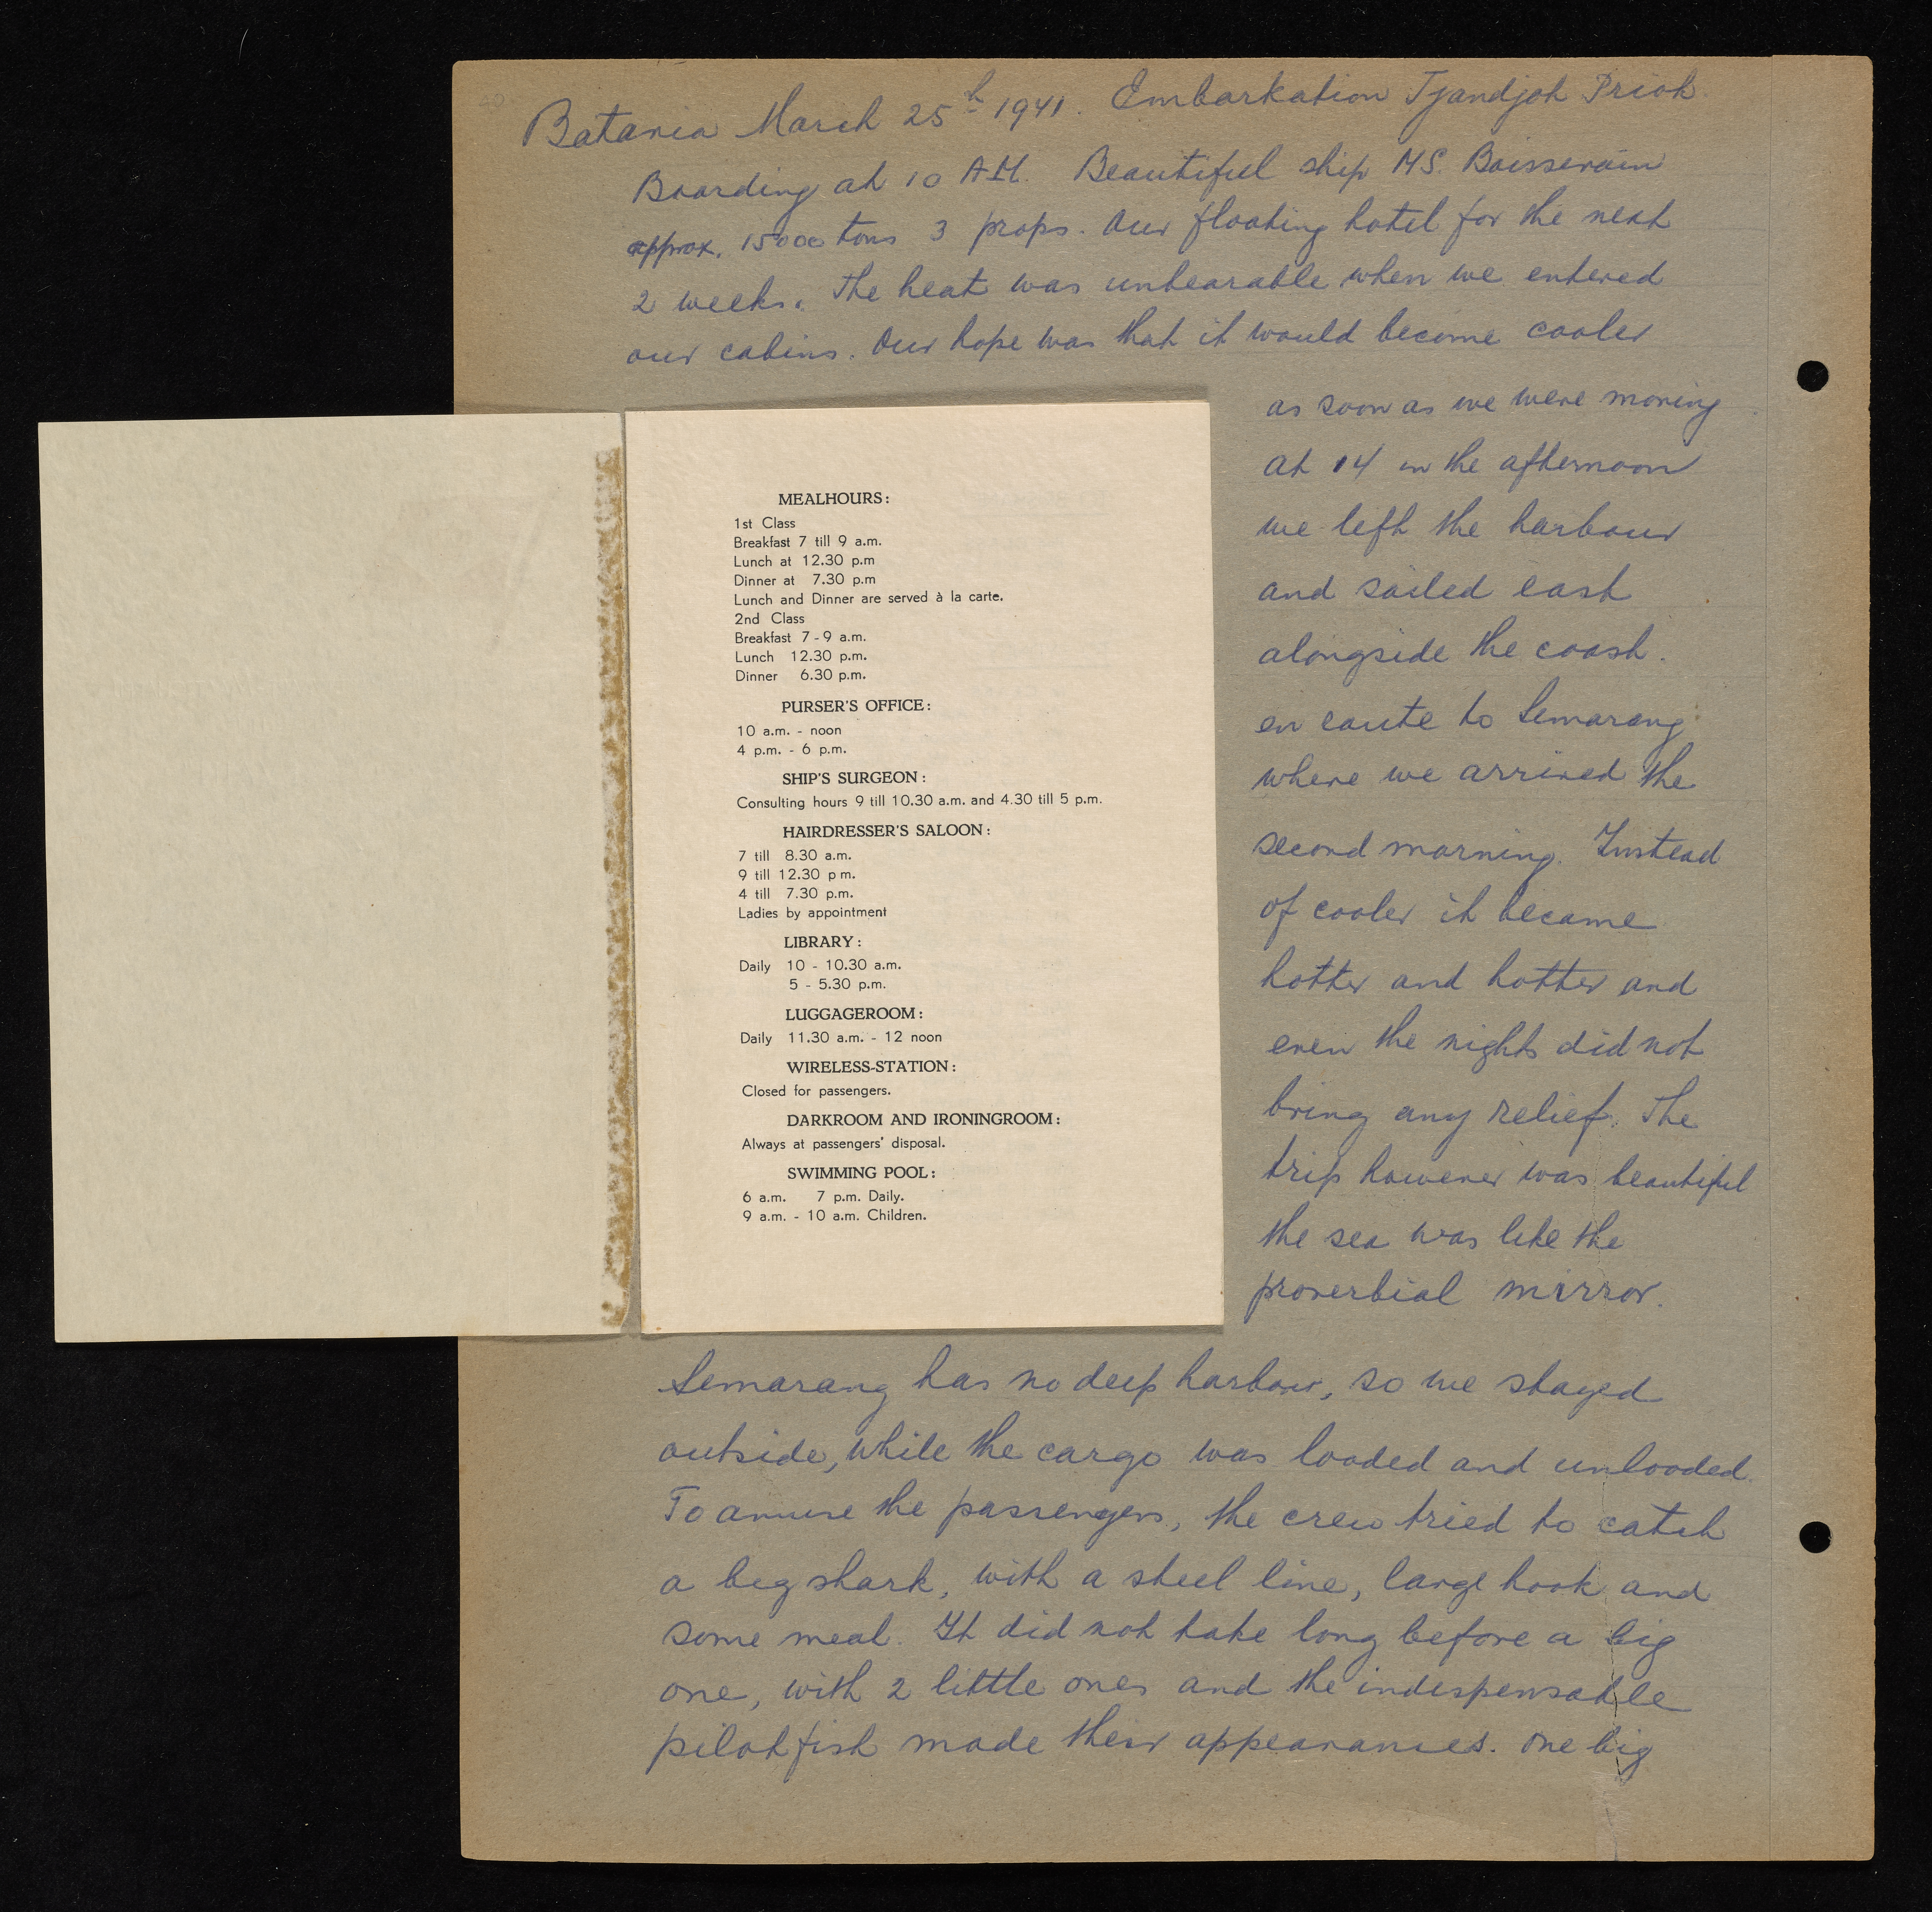 Batavia March 25h 1941. Embarkation Tjandjoh Prioh.
Boarding at 10 AM. Beautiful ship MS. Boissevain
approx. 15000 tons 3 props. Our floating hotel for the next
2 weeks. The heat was unbearable when we entered
our cabins. Our hope was that it would become cooler
as soon as we were moving
at 14 in the afternoon
we left the harbour
and sailed east
alongside the coast.
en route to Semarang
where we arrived the
second morning. Instead
of cooler it became
hotter and hotter and
even the nights did not
bring any relief. The
trip however was beautiful
the sea was like the
proverbial mirror.
MEALHOURS:
1st Class
Breakfast 7 till 9 a.m.
Lunch at 12.30 p.m
Dinner at 7.30 p.m
Lunch and Dinner are served à la carte.
2nd Class
Breakfast 7 - 9 a.m.
Lunch 12.30 p.m.
Dinner 6.30 p.m.
PURSER'S OFFICE:
10 a.m. - noon
4 p.m. - 6 p.m.
SHIP'S SURGEON:
Consulting hours 9 till 10.30 a.m. and 4.30 till 5 p.m.
HAIRDRESSER'S SALOON:
7 till 8.30 a.m.
9 till 12.30 p m.
4 till 7.30 p.m.
Ladies by appointment
LIBRARY:
Daily 10 - 10.30 a.m.
5 - 5.30 p.m.
LUGGAGEROOM:
Daily 11.30 a.m. - 12 noon
WIRELESS-STATION:
Closed for passengers.
DARKROOM AND IRONINGROOM:
Always at passengers' disposal.
SWIMMING POOL:
6 a.m. 7 p.m. Daily.
9 a.m. - 10 a.m. Children.
Semarang has no deep harbour, so we stayed
outside, while the cargo was loaded and unloaded.
To amuse the passengers, the crew tried to catch
a big shark, with a steel line, large hook and
some meat. It did not take long before a big
one, with 2 little ones and the indispensable
pilotfish made their appearances. One big